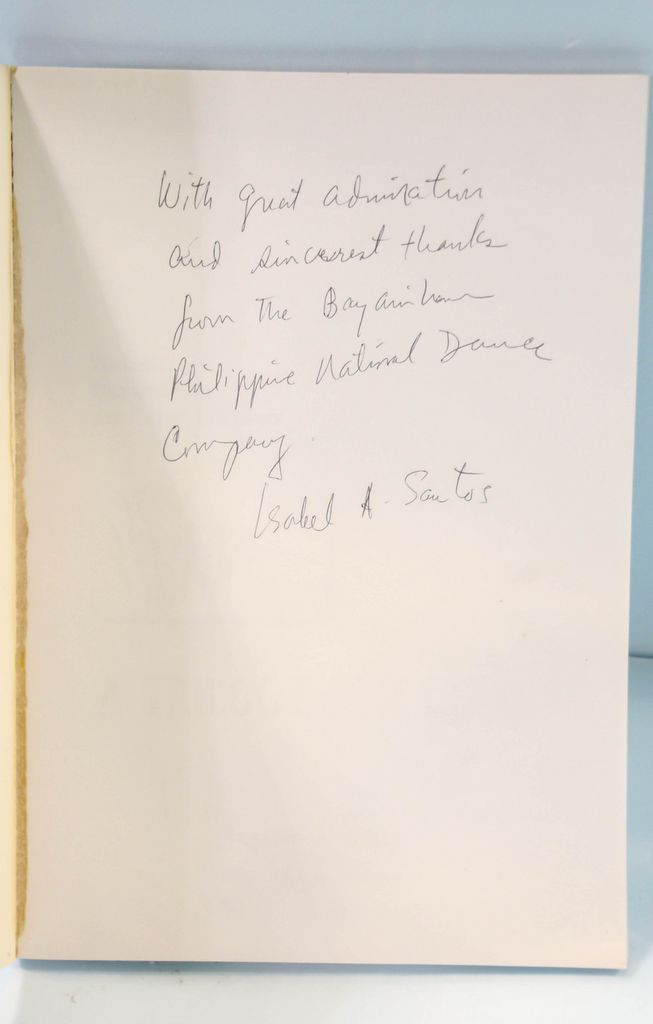 With great admiration
and sincerest thanks
from The Bayanihan
Philippine National Dance
Company.
Isabel A. Santos